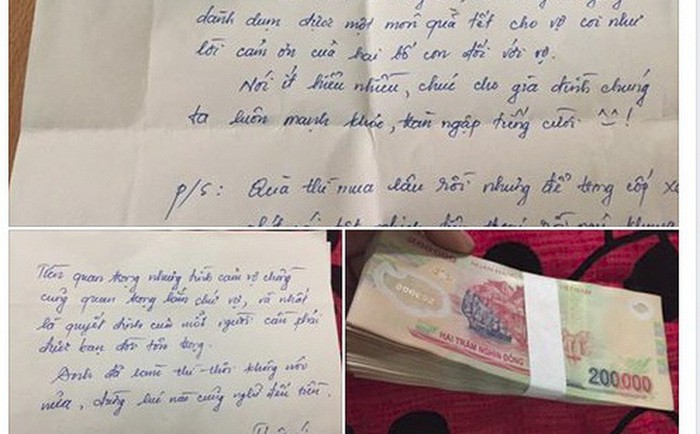 dành dụm được một món quà tết cho vợ coi như
lời cảm ơn của hai bố con đối với vợ.
Nói ít hiểu nhiều, chúc cho gia đình chúng
ta luôn mạnh khỏe, tràn ngập tiếng cười ^^!
P/S: Quà thì mua lâu rồi nhưng để trong cốp
Tiền quan trọng nhưng tình cảm vợ chồng
cũng quan trọng lắm chứ vợ, và nhất
là quyết định của mỗi người cần phải
được bàn đôi tôn trọng.
Anh đã làm thì thôi không nói
nữa, đừng lúc nào cũng nghĩ đến tiền.
VIỆT NAM
HAI TRĂM NGHÌN ĐỒNG
200000